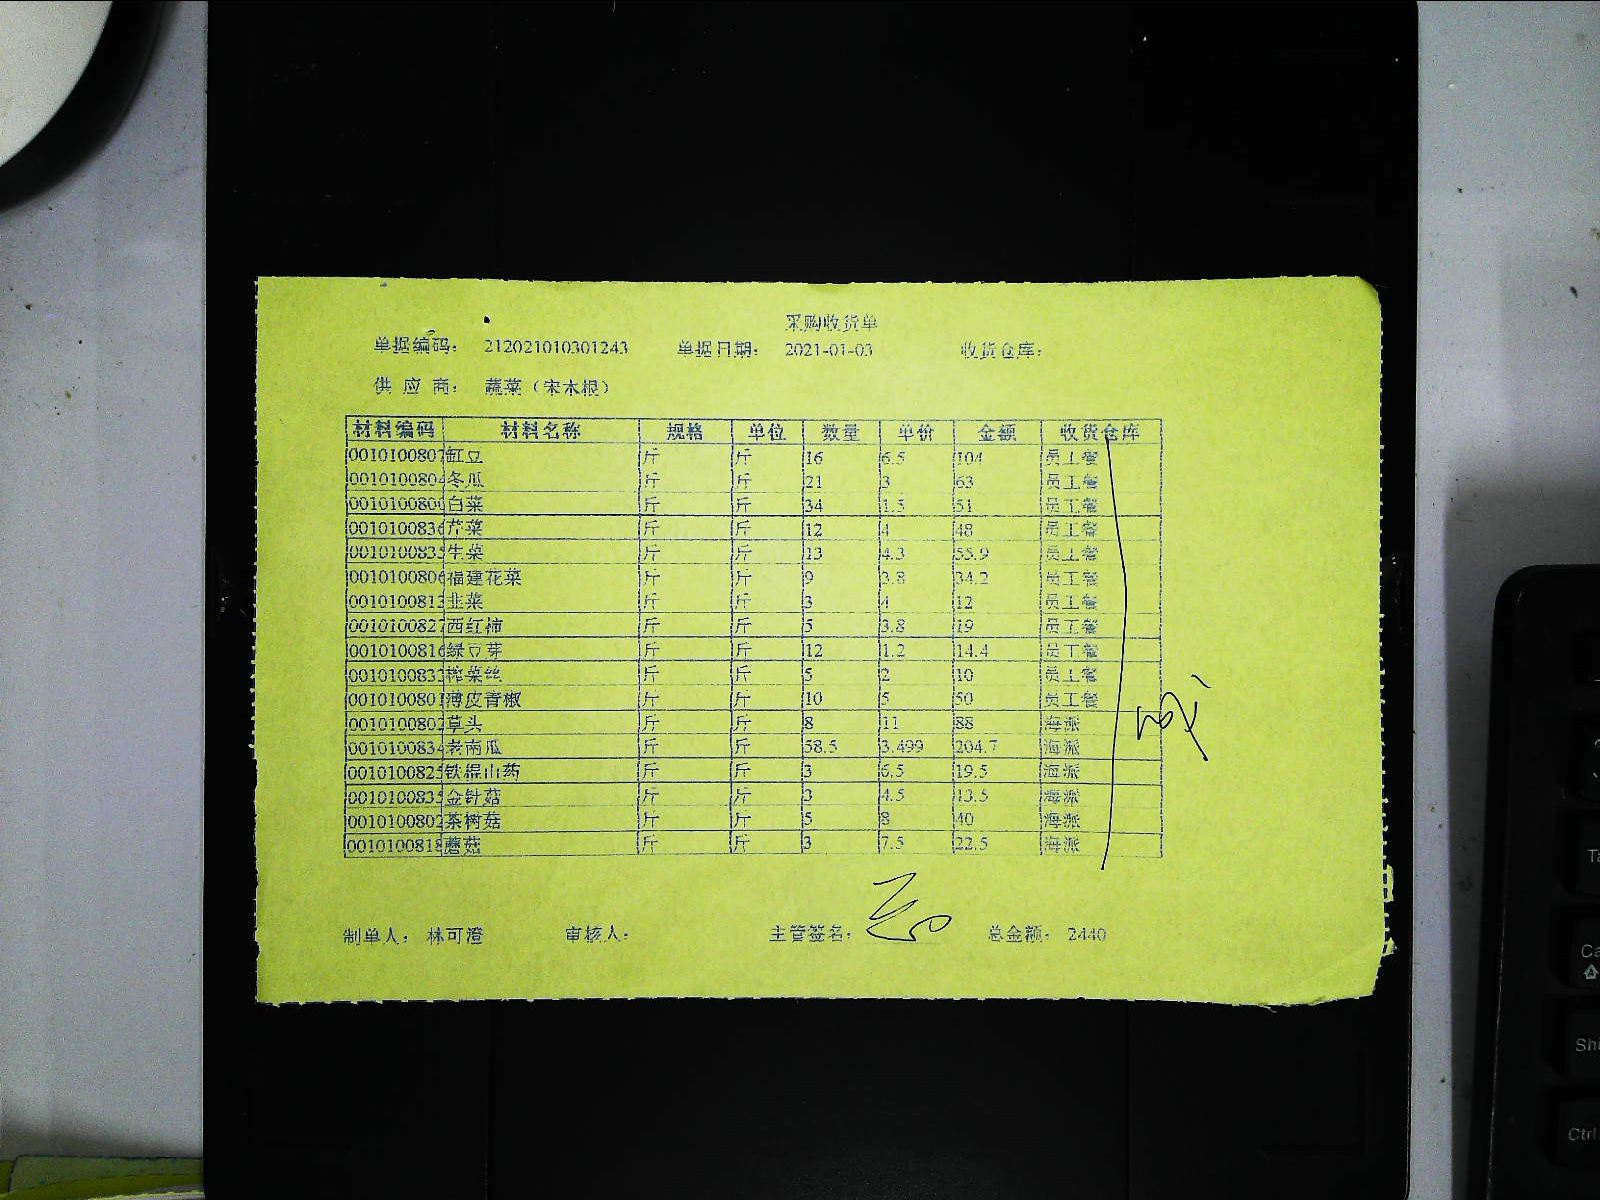 采购收货单
单据编码： 212021010301243 单据日期： 2021-01-03 收货仓库：
供 应 商： 蔬菜（宋木根）
材料编码 材料名称 规格 单位 数量 单价 金额 收货仓库
0010100807 缸豆 斤 斤 16 6.5 104 员工餐
001010080 冬瓜 斤 斤 21 3 63 员工餐
001010080 白菜 斤 斤 34 1.5 51 员工餐
001010083 芹菜 斤 斤 12 4 48 员工餐
001010083 生菜 斤 斤 13 4.3 55.9 员工餐
001010080 福建花菜 斤 斤 9 3.8 34.2 员工餐
001010081 韭菜 斤 斤 3 4 12 员工餐
0010100827 西红柿 斤 斤 5 3.8 19 员工餐
001010081 绿豆芽 斤 斤 12 1.2 14.4 员工餐
001010083 榨菜丝 斤 斤 5 2 10 员工餐
001010080 薄皮青椒 斤 斤 10 5 50 员工餐
001010080 草头 斤 斤 8 11 88 海派
001010083 老南瓜 斤 斤 58.5 3.499 204.7 海派
001010082 铁棍山药 斤 斤 3 6.5 19.5 海派
001010083 金针菇 斤 斤 3 4.5 13.5 海派
001010080 茶树菇 斤 斤 5 8 40 海派
001010081 蘑菇 斤 斤 3 7.5 22.5 海派
制单人： 林可澄 审核人： 主管签名： 总金额： 2440
Ctrl